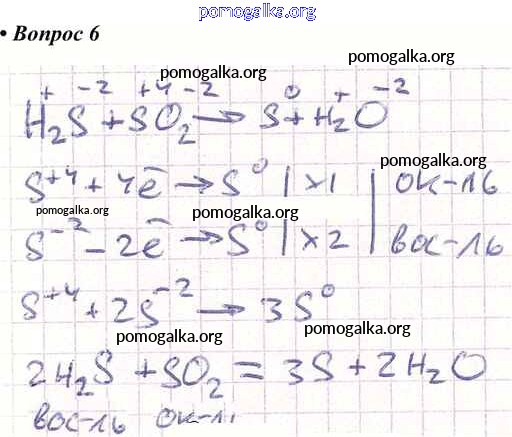 pomogalka.org
• Вопрос 6
pomogalka.org
pomogalka.org
+ -2 +4 -2 0 + -2
H₂S + SO₂ → S + H₂O
pomogalka.org
S⁺⁴ + 4ē → S⁰ | ×1 | ок-ль
pomogalka.org
pomogalka.org
S⁻² - 2ē → S⁰ | ×2 | вос-ль
S⁺⁴ + 2S⁻² → 3S⁰
pomogalka.org
pomogalka.org
2H₂S + SO₂ = 3S + 2H₂O
вос-ль ок-ль